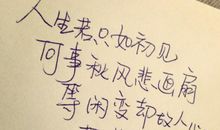 人生若只如初见
何事秋风悲画扇
等闲变却故人